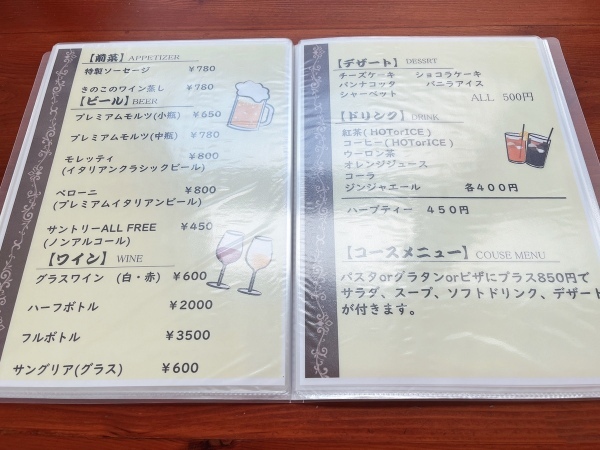 【前菜】 APPETIZER
特製ソーセージ ¥780
きのこのワイン蒸し ¥780
【ビール】 BEER
プレミアムモルツ(小瓶) ¥650
プレミアムモルツ(中瓶) ¥780
モレッティ ¥800
(イタリアンクラシックビール)
ペローニ ¥800
(プレミアムイタリアンビール)
サントリーALL FREE ¥450
(ノンアルコール)
【ワイン】 WINE
グラスワイン (白・赤) ¥600
ハーフボトル ¥2000
フルボトル ¥3500
サングリア(グラス) ¥600
【デザート】 DESSRT
チーズケーキ ショコラケーキ
パンナコッタ バニラアイス
シャーベット
ALL 500円
【ドリンク】 DRINK
紅茶(HOTorICE)
コーヒー(HOTorICE)
ウーロン茶
オレンジジュース
コーラ
ジンジャエール 各400円
ハーブティー 450円
【コースメニュー】 COUSE MENU
パスタorグラタンorピザにプラス850円で
サラダ、スープ、ソフトドリンク、デザート
が付きます。